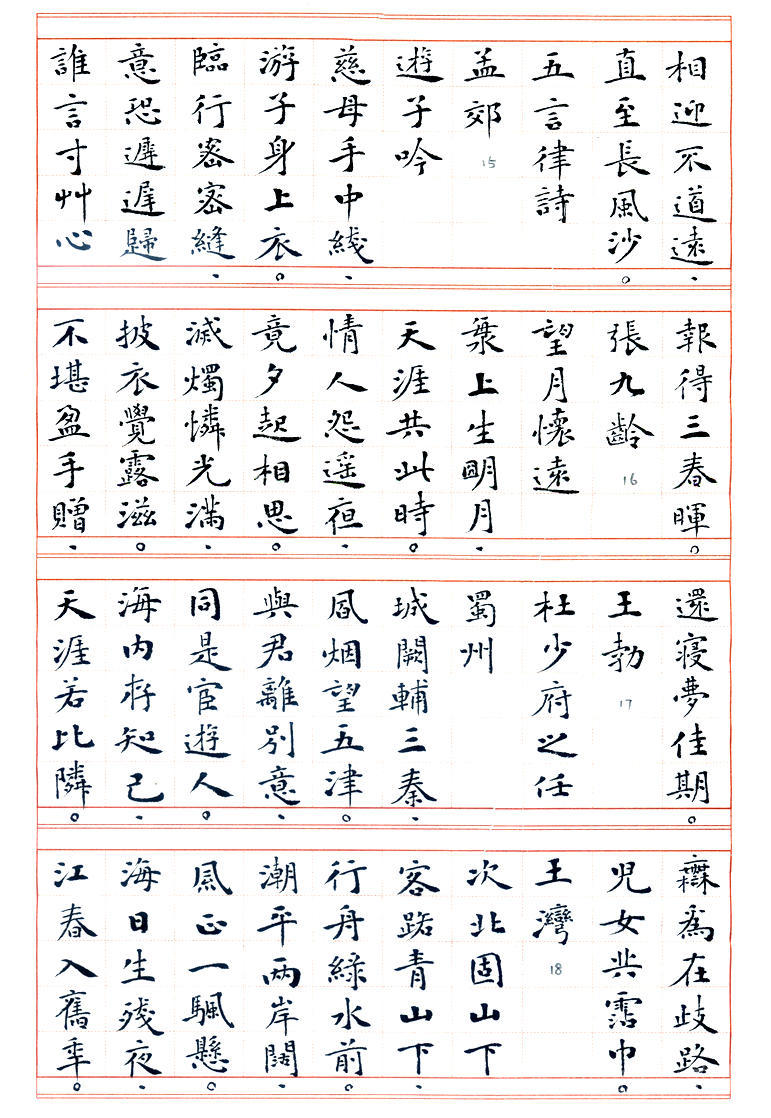 相迎不道遠、
直至長風沙。
五言律詩
孟郊 15
遊子吟
慈母手中綫、
游子身上衣。
臨行密密縫、
意恐遲遲歸
誰言寸艸心
報得三春暉。
張九齡 16
望月懷遠
海上生朙月、
天涯共此時。
情人怨遥夜、
竟夕起相思。
滅燭憐光滿、
披衣覺露滋。
不堪盈手贈、
還寢夢佳期。
王勃 17
杜少府之任
蜀州
城闕輔三秦、
風烟望五津。
與君離別意、
同是宦遊人。
海内存知己、
天涯若比隣。
無爲在歧路、
兒女共霑巾。
王灣 18
次北固山下
客路青山下、
行舟綠水前。
潮平兩岸闊、
風正一颿懸。
海日生殘夜、
江春入舊年。